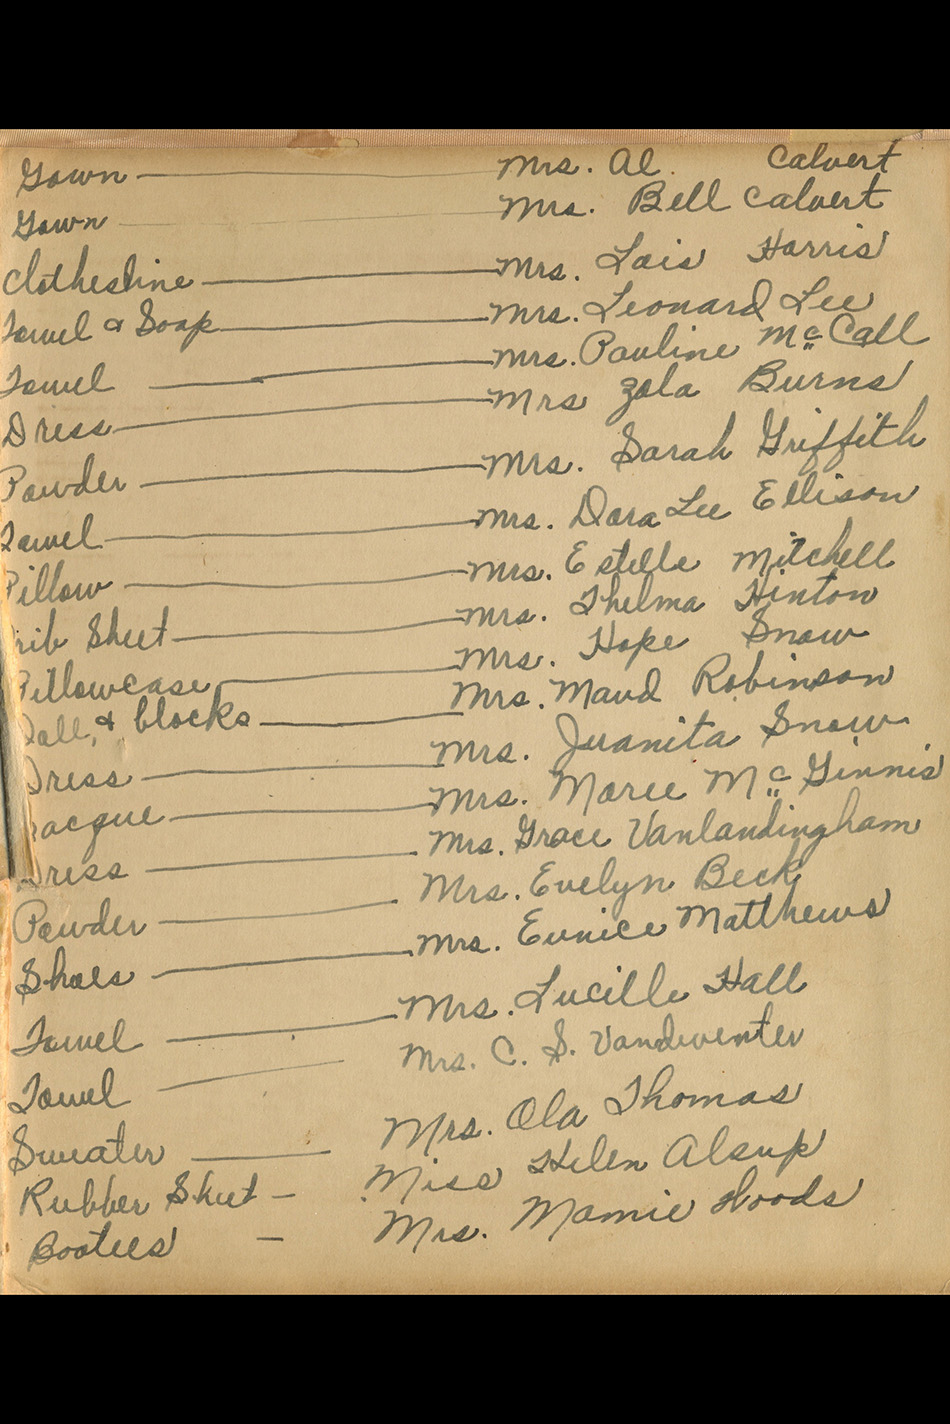 Gown — Mrs. Al. Calvert
Gown — Mrs. Bell Calvert
Clothesline — Mrs. Lois Harris
Towel & Soap — Mrs. Leonard Lee
Towel — Mrs. Pauline McCall
Dress — Mrs Zola Burns
Powder — Mrs. Sarah Griffith
Towel — Mrs. Dora Lee Ellison
Pillow — Mrs. Estelle Mitchell
rib Sheet — Mrs. Thelma Hinton
Pillowcase — Mrs. Hope Snow
Doll, & blocks — Mrs. Maud Robinson
Dress — Mrs. Juanita Snow
acque — Mrs. Maree McGinnis
Dress — Mrs. Grace Vanlandingham
Powder — Mrs. Evelyn Beck
Shoes — Mrs. Eunice Matthews
Towel — Mrs. Lucille Hall
Towel — Mrs. C. S. Vandiventer
Sweater — Mrs. Ola Thomas
Rubber Sheet — Miss Helen Alsup
Bootees — Mrs. Mamie Woods